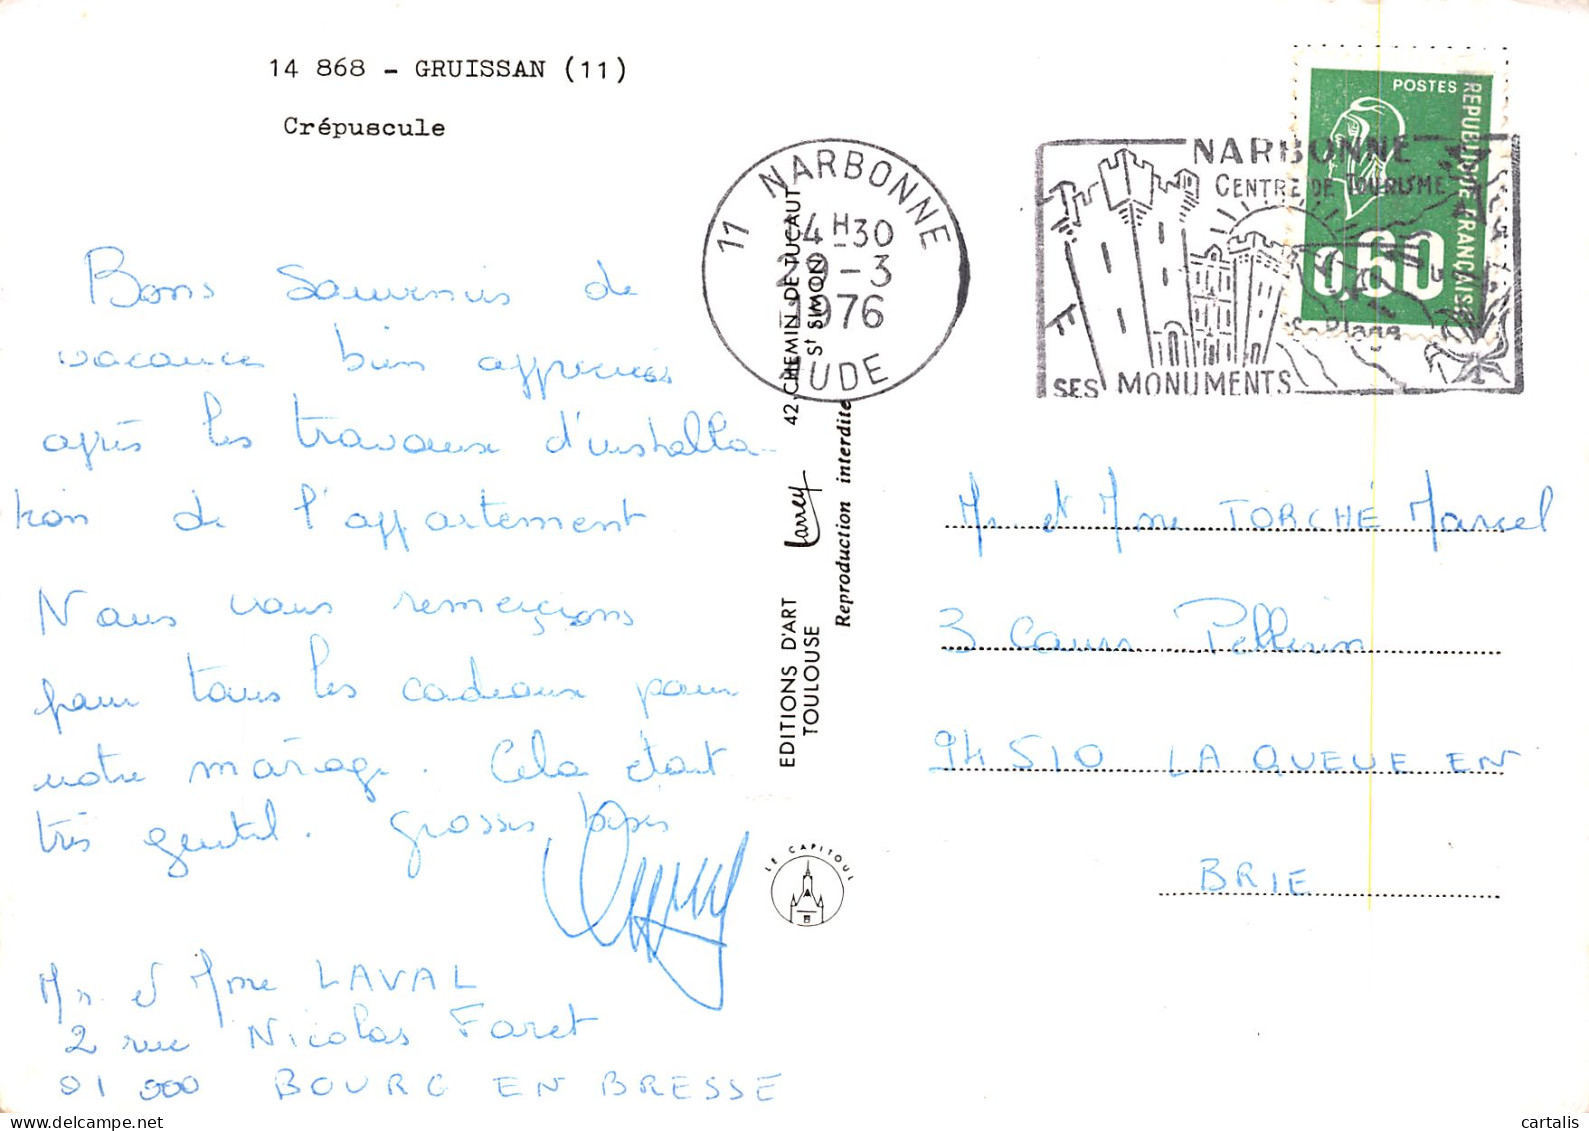 14 868 - GRUISSAN (11)
Crépuscule
Bons Souvenirs de
vacances bien appréciées
après les travaux d'installa-
tion de l'appartement
Nous vous remerçions
pour tous les cadeaux pour
notre mariage. Cela était
très gentil. Grosses bises
Mr et Mme LAVAL
2 rue Nicolas Faret
01 000 BOURG EN BRESSE
11 NARBONNE
14H30
29-3
1976
AUDE
EDITIONS D'ART Larrey 42, CHEMIN DE TUCAUT
TOULOUSE St SIMON
Reproduction interdite
LE CAPITOUL
NARBONNE
CENTRE DE TOURISME
SES MONUMENTS
S-Plage
POSTES
REPUBLIQUE FRANÇAISE
0,60
Mr et Mme TORCHÉ Marcel
3 Cour Pellerin
94 510 LA QUEUE EN
BRIE
cartalis
www.delcampe.net